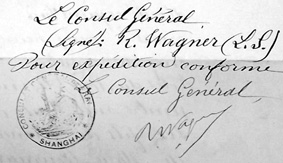 Le Consul Général
(Signé: R. Wagner (L.S.)
Pour expédition conforme
Le Consul Général,
RWagner
SHANGHAI